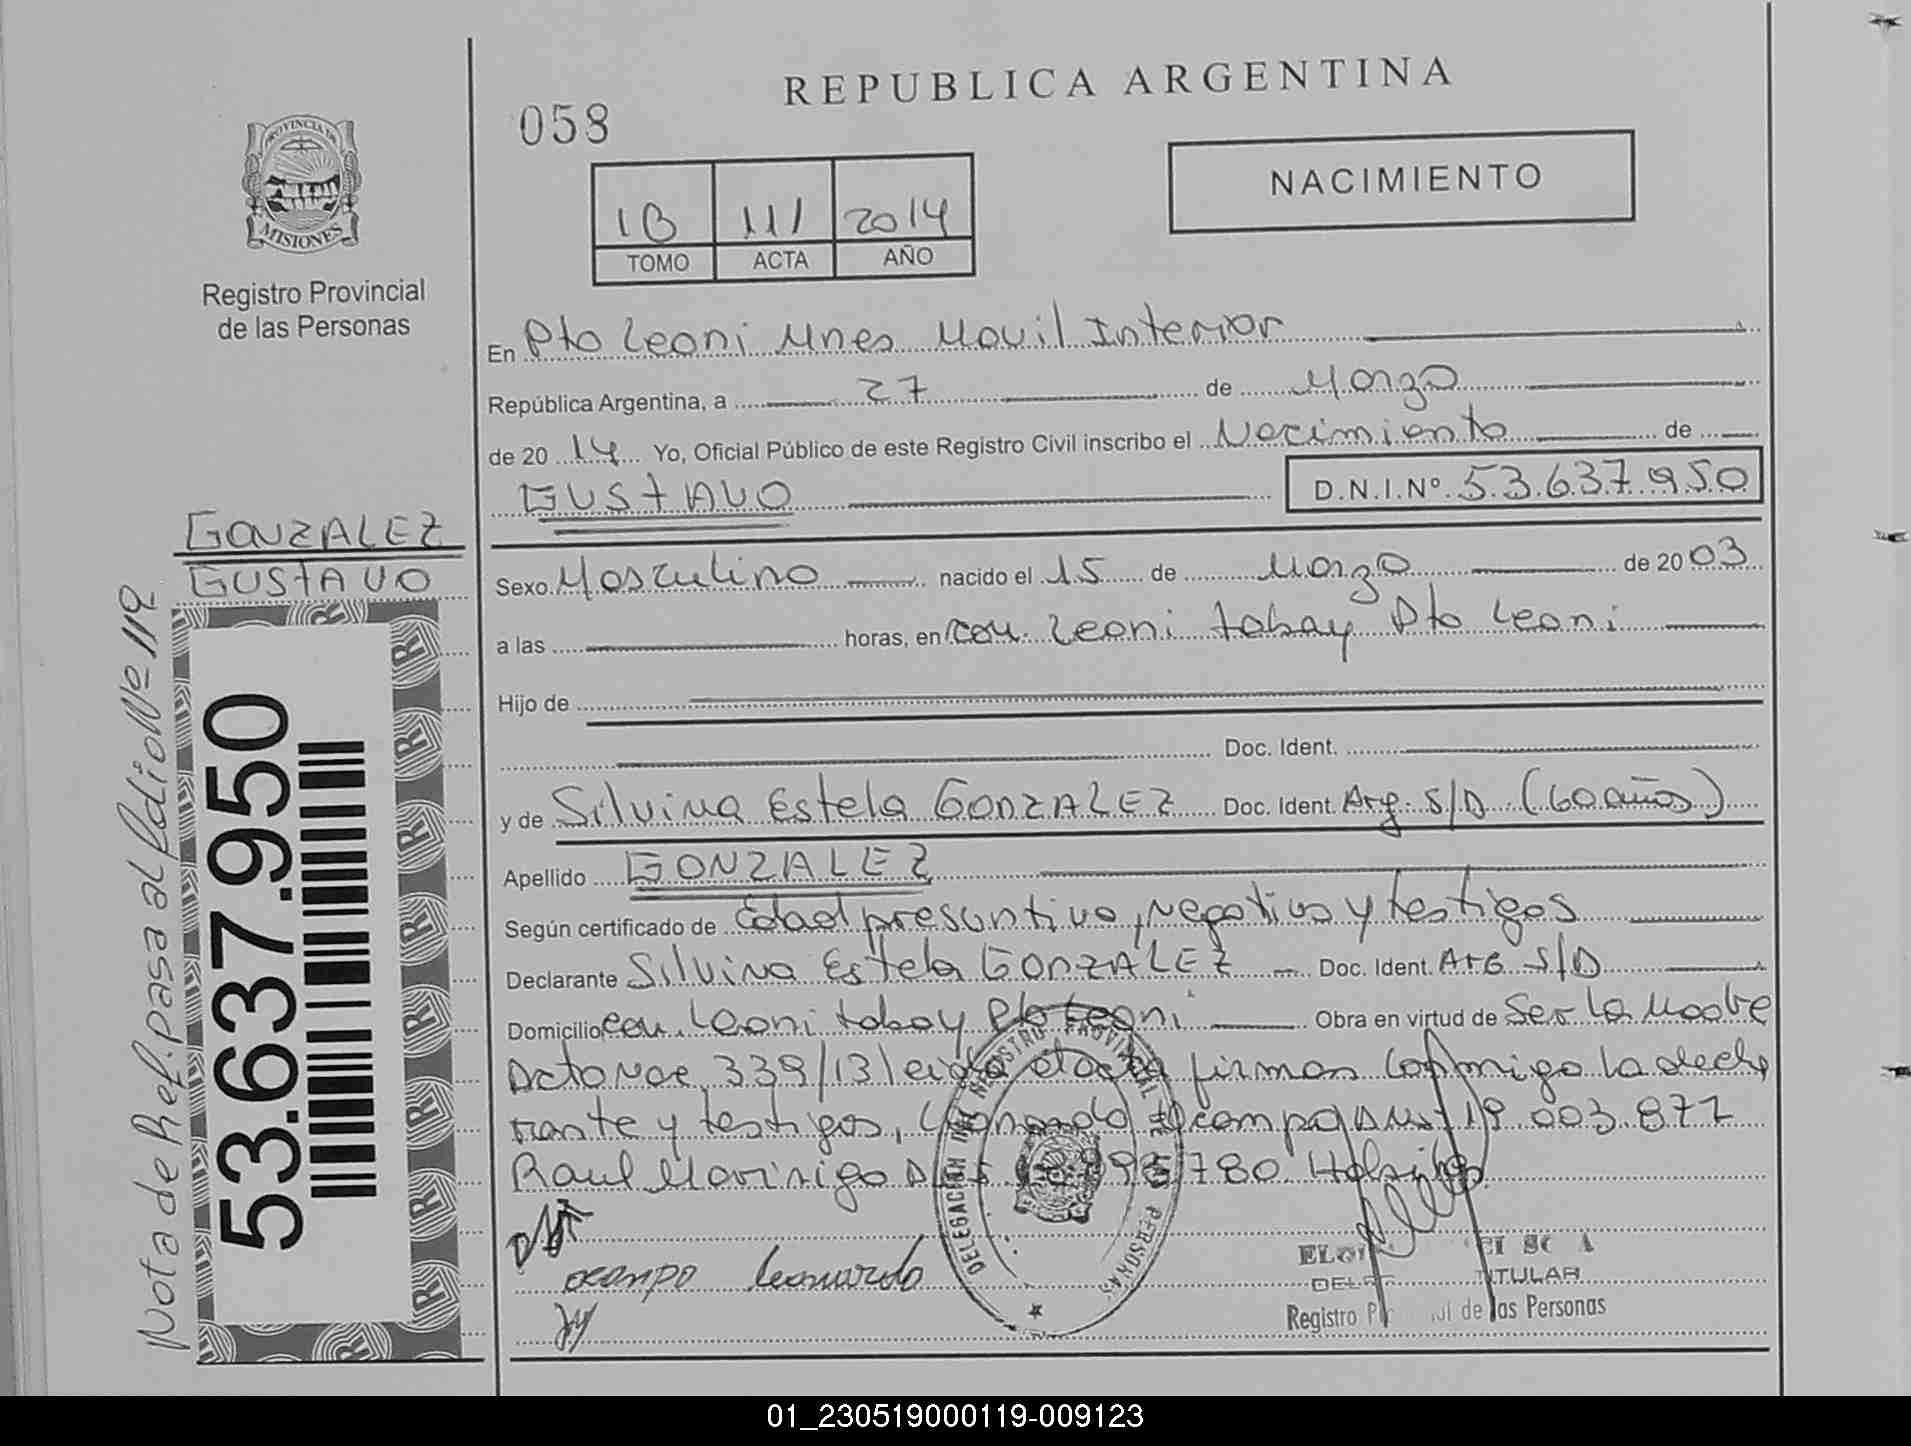 REPUBLICA ARGENTINA
058
NACIMIENTO
1B 111 2014
TOMO ACTA AÑO
PROVINCIA DE
MISIONES
Registro Provincial
de las Personas
En Pto Leoni Mnes Movil Interior
República Argentina, a 27 de Marzo
de 2014 Yo, Oficial Público de este Registro Civil inscribo el Nacimiento de
GUSTAVO D.N.I.Nº 53.637.950
GONZALEZ
GUSTAVO
Sexo Masculino nacido el 15 de Marzo de 2003
a las horas, en Leoni tabay Pto Leoni
Hijo de
Doc. Ident.
y de Silvina Estela GONZALEZ Doc. Ident. Arg. S/D (60 años)
Apellido GONZALEZ
Según certificado de Edad presuntiva, negativa y testigos
Declarante Silvina Estela GONZALEZ Doc. Ident. Arg S/D
Domicilio Leoni tabay Pto Leoni Obra en virtud de Ser la Madre
339/13 firman conmigo la decla
rante y testigos, 19.003.877
Raul
ocampo Leonardo
DELEGACION DEL REGISTRO PROVINCIAL DE PERSONAS
TITULAR
Registro de las Personas
53.637.950
Nota de Ref. pasa al folio Nº 119
01_230519000119-009123